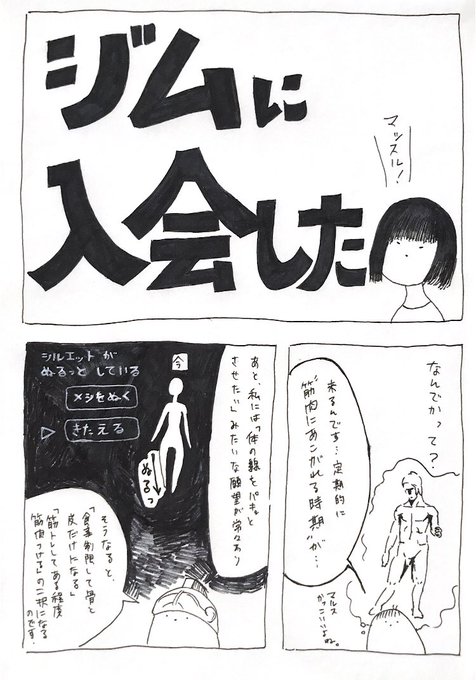 ジムに
入会した
マッスル!
なんでかって?
来るんです…定期的に
「筋肉にあこがれる時期」が…
マルス
かっこいいよね。
あと、私には「体の線をパキッと
させたい」みたいな願望が常々あり
シルエットが
ぬるっと している
今
メシをぬく
▷ きたえる
ぬるっ
そうなると、
「食事制限して骨と
皮だけになる」
「筋トレしてある程度
筋肉つける」の二択になる
のです。